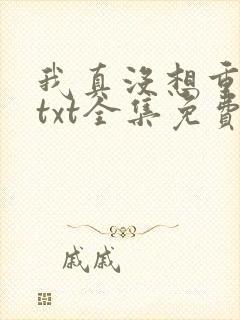 我真没想重
txt全集免費
戚戚